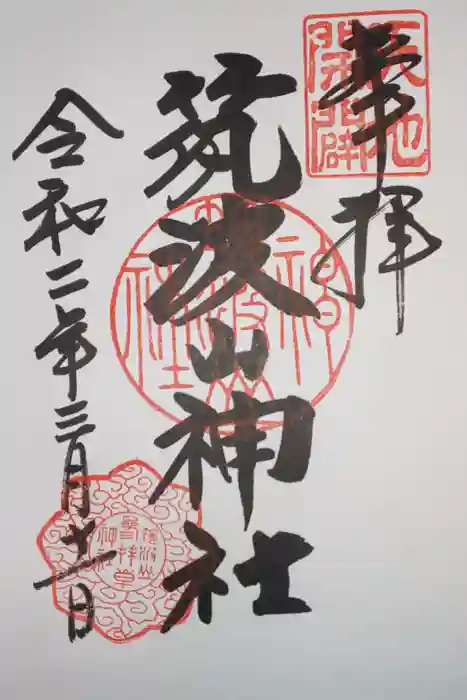 奉拝
天地開闢
筑波山神社
筑波山神社
令和二年三月十一日